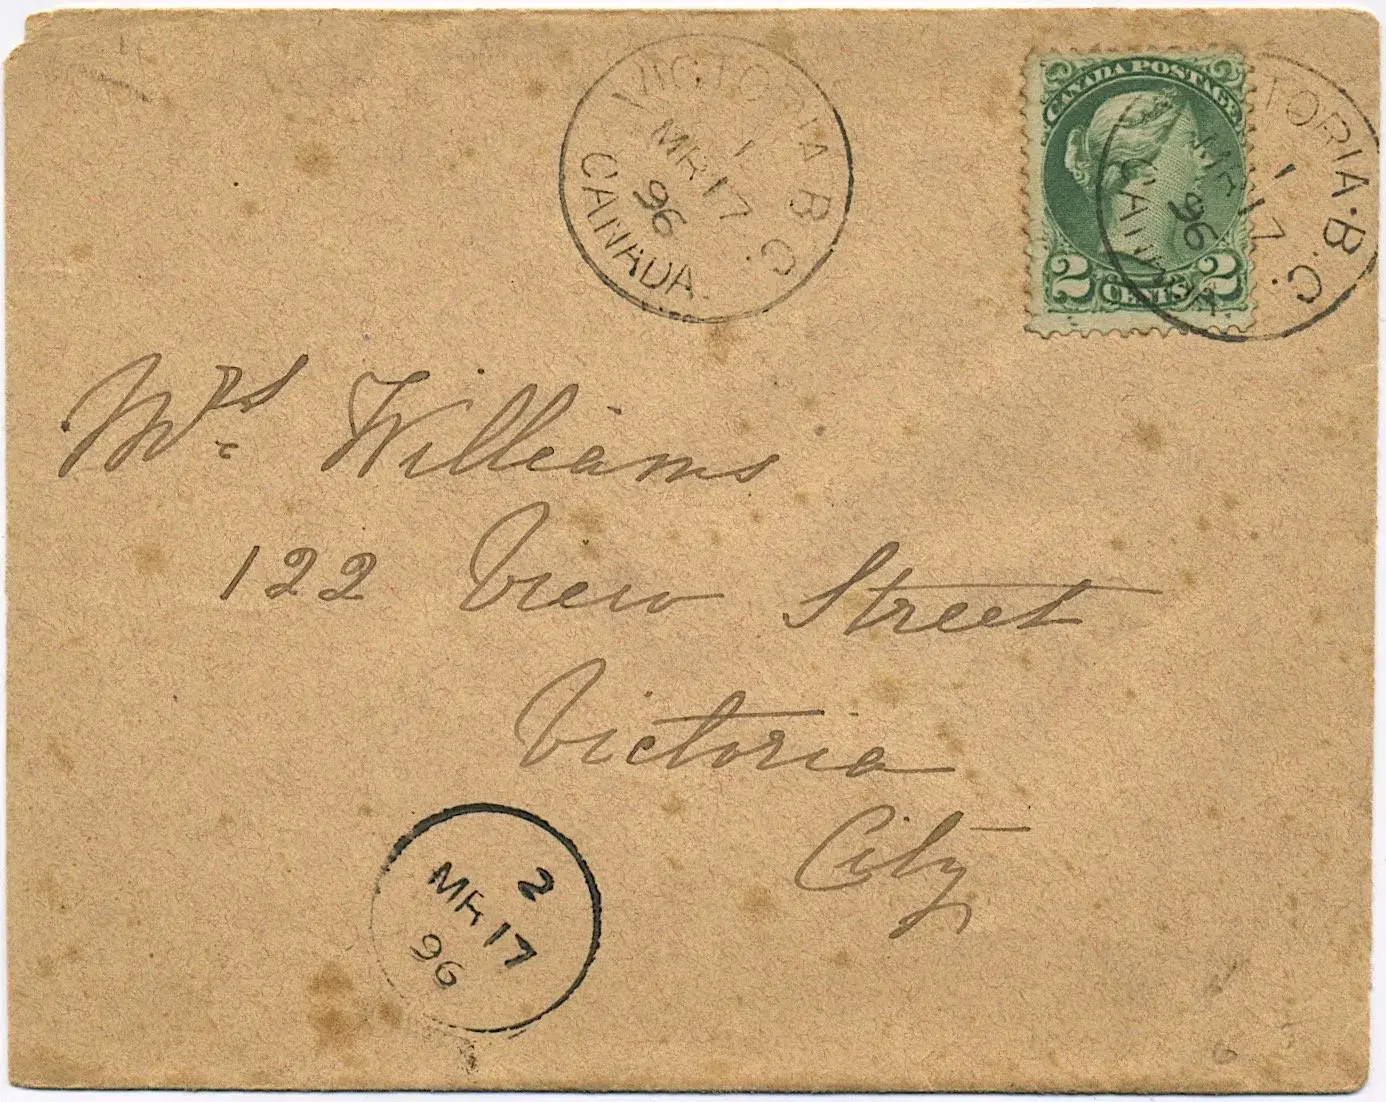 VICTORIA B.C.
1
MR 17
96
CANADA.
CANADA POSTAGE
2 CENTS 2
TORIA. B.C.
1
MR 17
96
CANADA.
Mrs. Williams
122 View Street
Victoria
City
2
MR 17
96